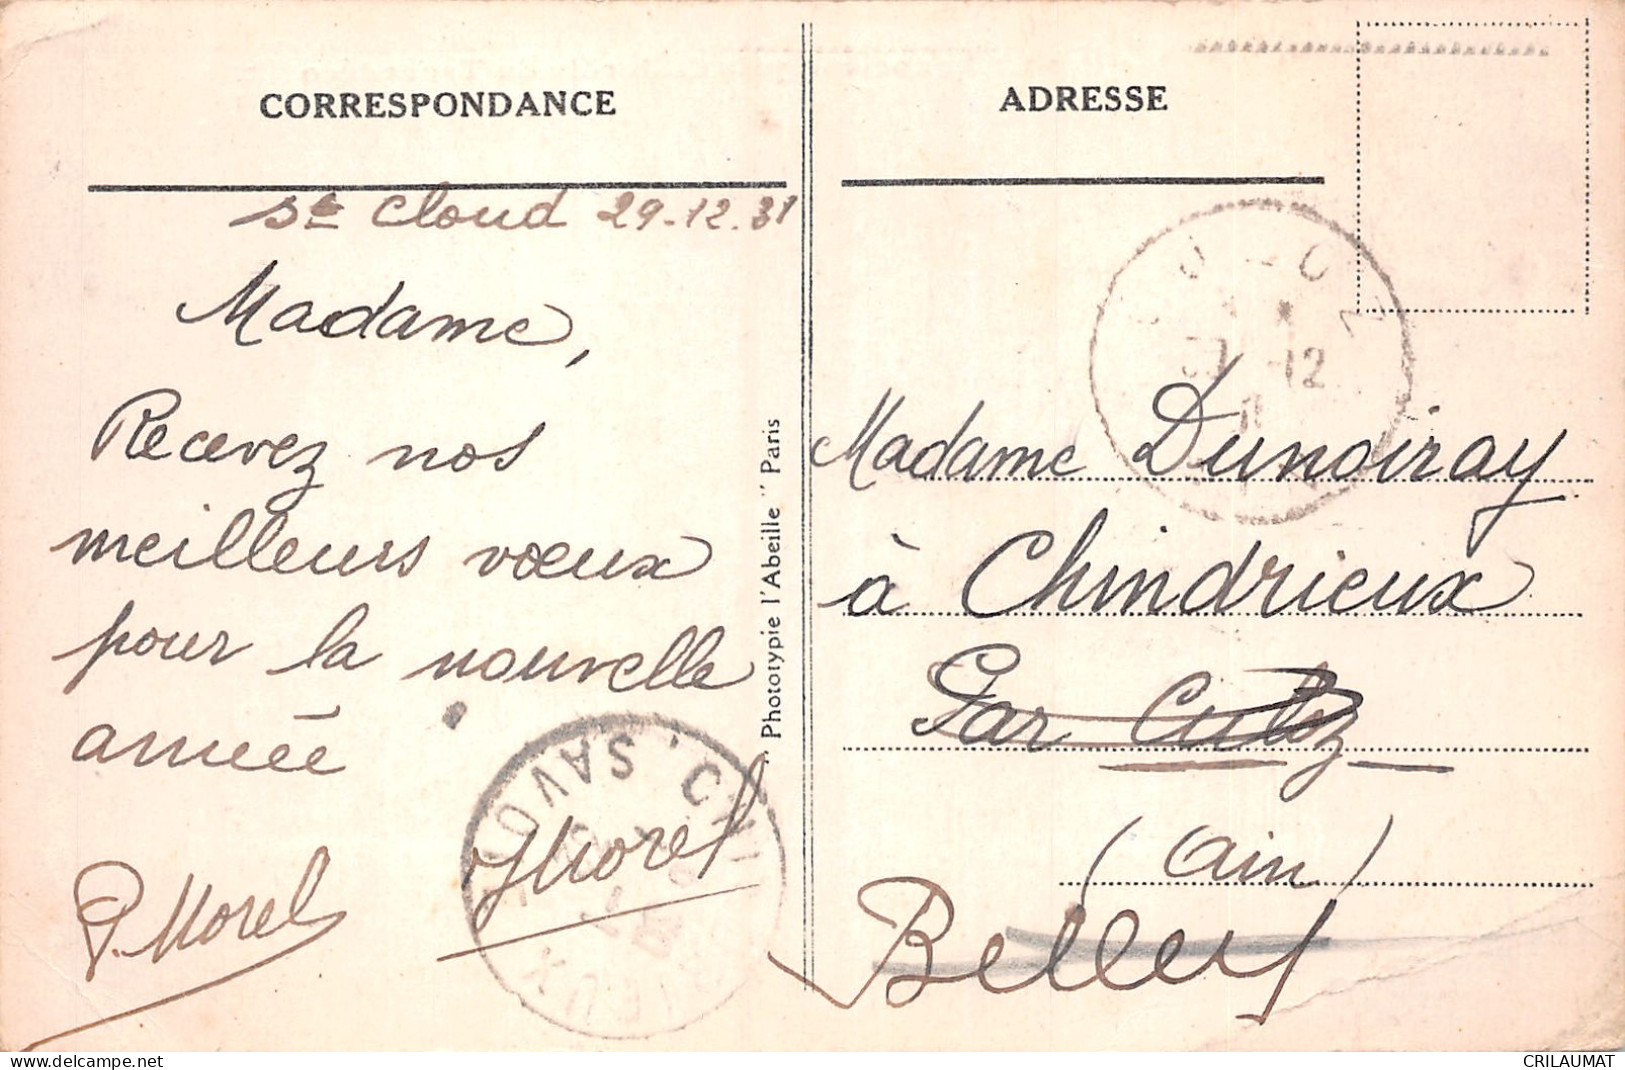 CORRESPONDANCE
St Cloud 29-12.31
Madame,
Recevez nos
meilleurs vœux
pour la nouvelle
année
P. Morel
JMorel
" Phototypie l'Abeille " Paris
ADRESSE
12
Madame Dunoiray
à Chindrieux
Par Culoz
(Ain)
Belley
SAVOIE
www.delcampe.net
CRILAUMAT